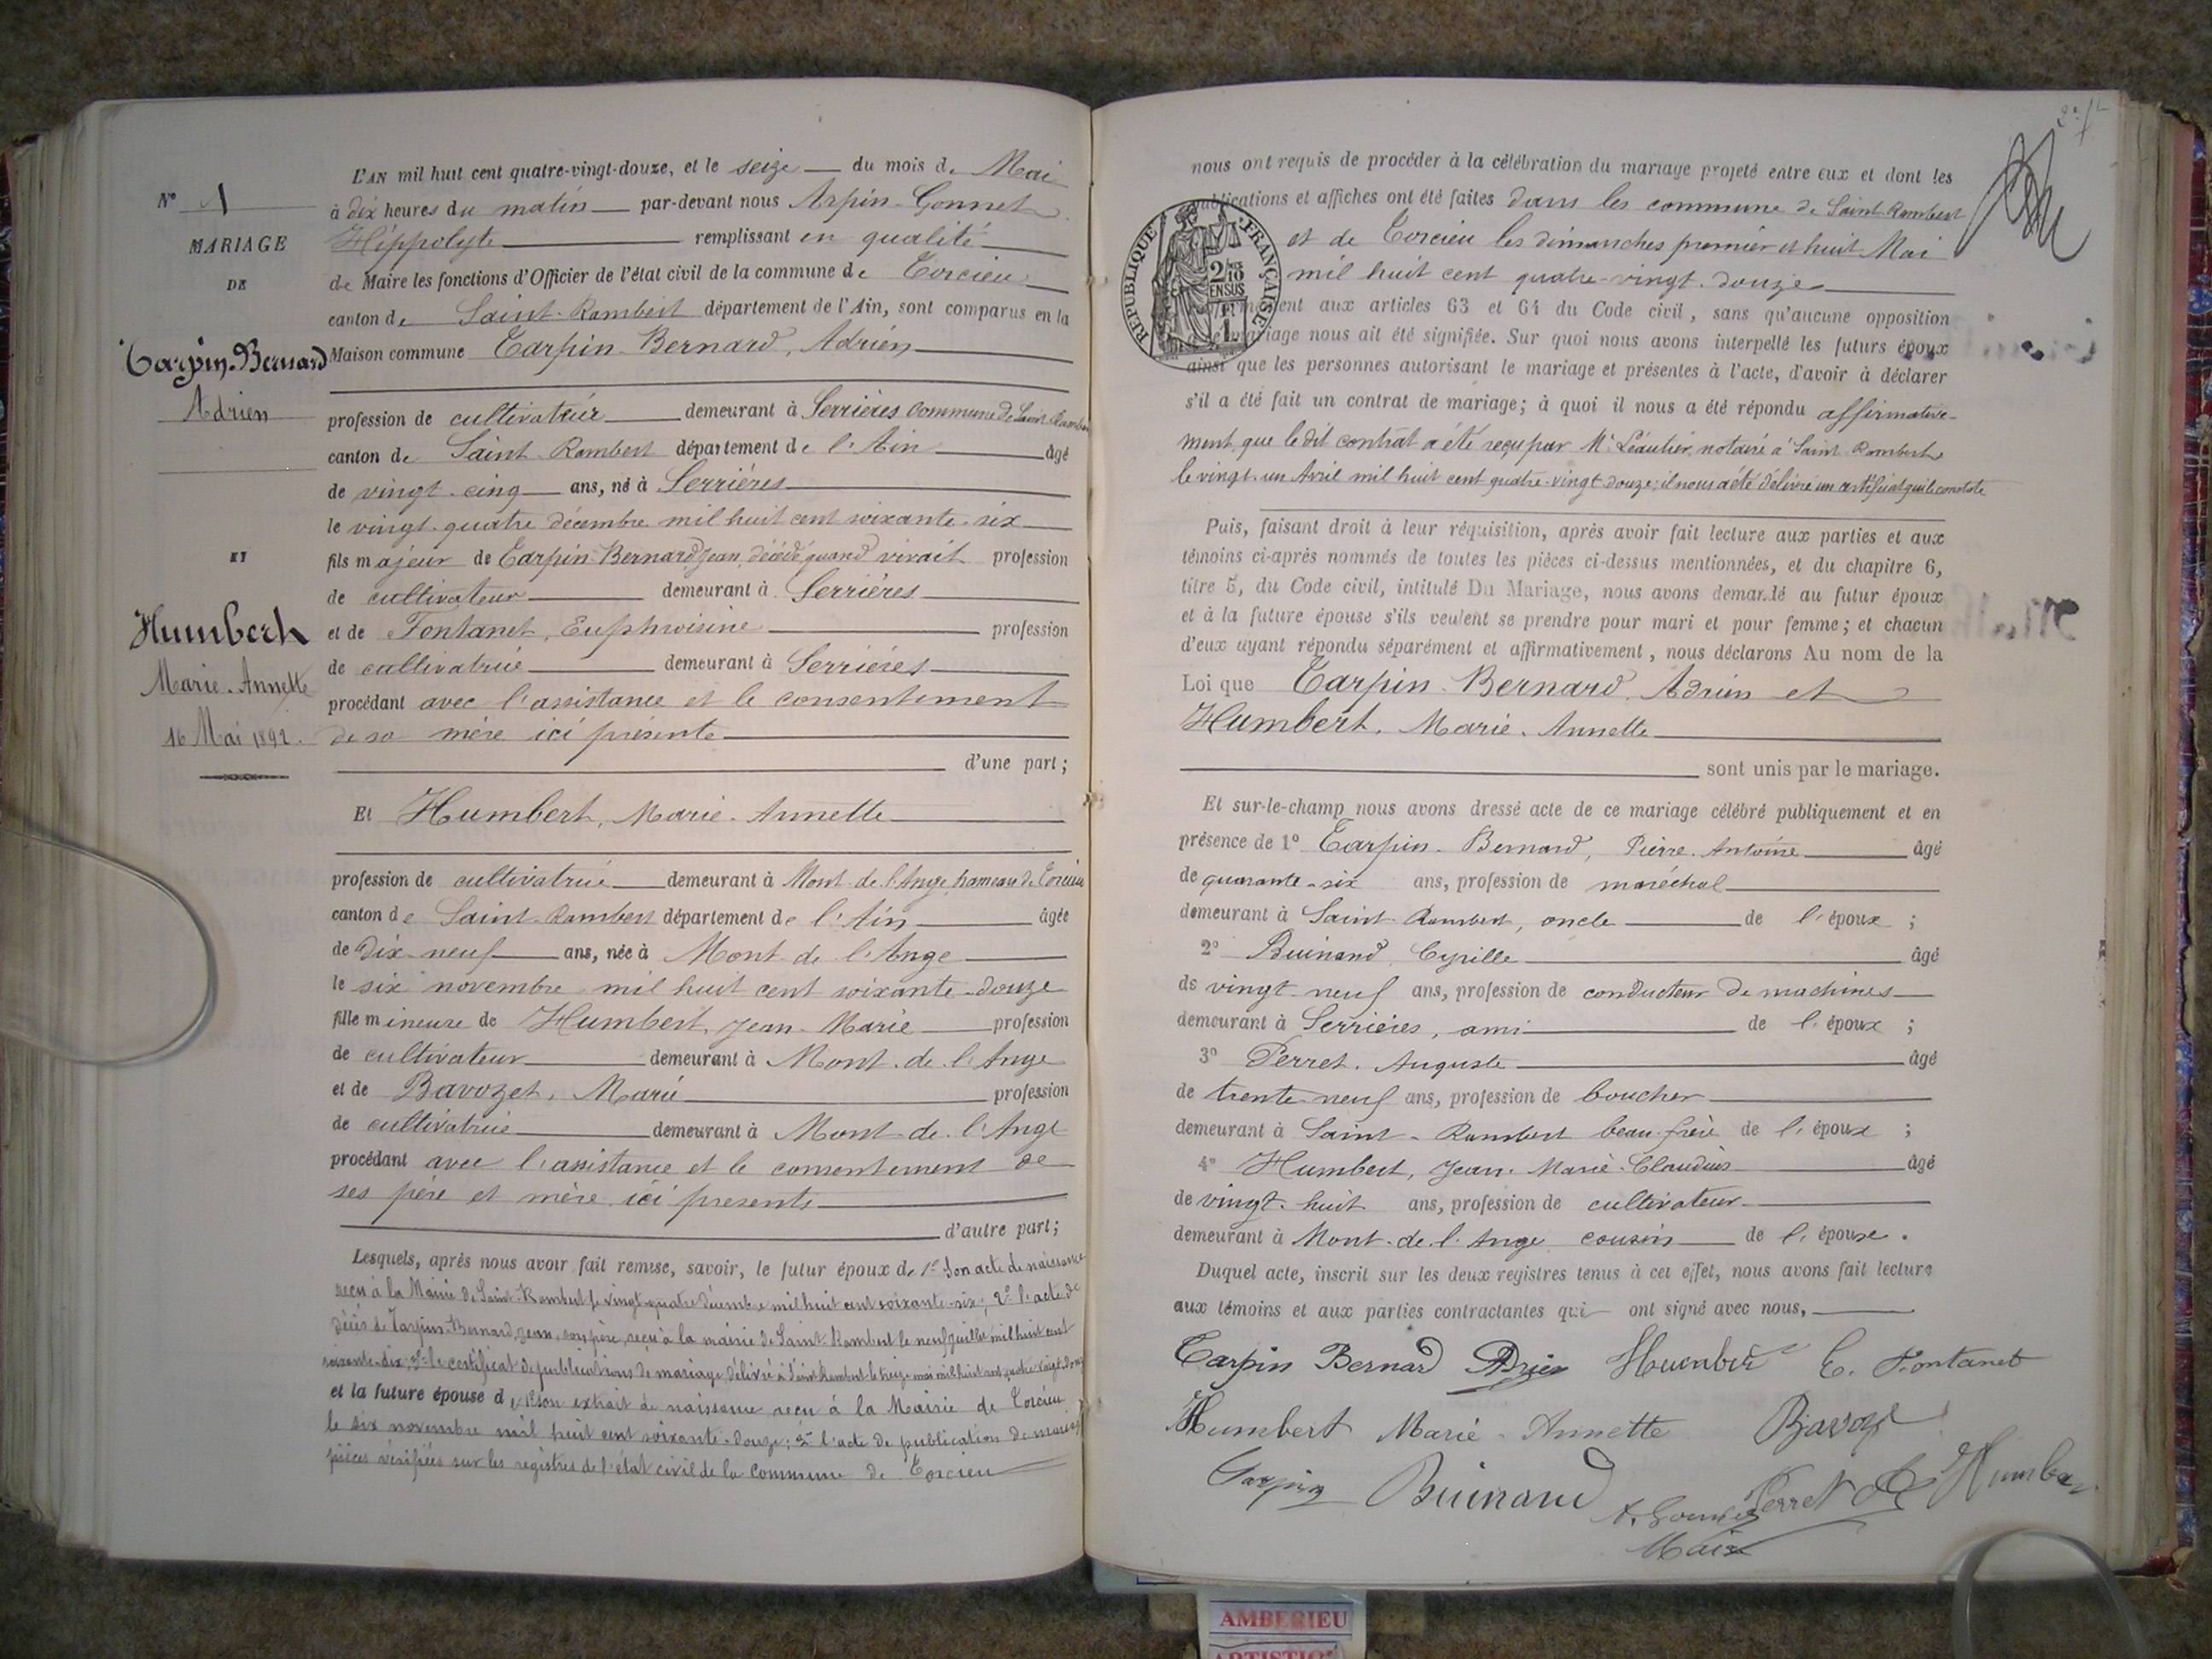 L'AN mil huit cent quatre-vingt-douze, et le seize du mois de Mai
à dix heures du matin par-devant nous Arpin-Gonnet
Hippolyte remplissant en qualité
de Maire les fonctions d'Officier de l'état civil de la commune de Torcieu
canton de Saint-Rambert département de l'Ain, sont comparus en la
Maison commune Tarpin-Bernard, Adrien
profession de cultivateur demeurant à Serrières commune de Saint Rambert
canton de Saint-Rambert département de l'Ain âgé
de vingt-cinq ans, né à Serrières
le vingt-quatre décembre mil huit cent soixante-six
fils majeur de Tarpin-Bernard Jean, décédé quand vivait profession
de cultivateur demeurant à Serrières
et de Fontanet, Euphroisine profession
de cultivatrice demeurant à Serrières
procédant avec l'assistance et le consentement
de sa mère ici présente
d'une part;
Et Humbert, Marie-Annette
profession de cultivatrice demeurant à Mont-de-l'Ange, hameau de Torcieu
canton de Saint-Rambert département de l'Ain âgée
de dix-neuf ans, née à Mont-de-l'Ange
le six novembre mil huit cent soixante-douze
fille mineure de Humbert, Jean-Marie profession
de cultivateur demeurant à Mont-de-l'Ange
et de Bavozet, Marie profession
de cultivatrice demeurant à Mont-de-l'Ange
procédant avec l'assistance et le consentement de
ses père et mère ici présents
d'autre part;
Lesquels, après nous avoir fait remise, savoir, le futur époux de 1º Son acte de naissance
reçu à la Mairie de Saint-Rambert le vingt-quatre décembre mil huit cent soixante-six; 2º l'acte de
décès de Tarpin-Bernard, Jean, son père, reçu à la mairie de Saint-Rambert le neuf juillet mil huit cent
soixante-dix; 3º le certificat de publications de mariage délivré à Saint-Rambert le treize mai mil huit cent quatre-vingt-douze
et la future épouse de 1º son extrait de naissance reçu à la Mairie de Torcieu
le six novembre mil huit cent soixante-douze; 2º l'acte de publication de mariage
pièces vérifiées sur les registres de l'état civil de la commune de Torcieu
Nº 1
MARIAGE
DE
Tarpin-Bernard
Adrien
ET
Humbert
Marie-Annette
16 Mai 1892.
nous ont requis de procéder à la célébration du mariage projeté entre eux et dont les
publications et affiches ont été faites dans les commune de Saint-Rambert
et de Torcieu les dimanches premier et huit Mai
mil huit cent quatre-vingt-douze
aux articles 63 et 64 du Code civil, sans qu'aucune opposition
mariage nous ait été signifiée. Sur quoi nous avons interpellé les futurs époux
ainsi que les personnes autorisant le mariage et présentes à l'acte, d'avoir à déclarer
s'il a été fait un contrat de mariage; à quoi il nous a été répondu affirmative-
ment, que le dit contrat a été reçu par Me Léautier, notaire à Saint-Rambert
le vingt-un Avril mil huit cent quatre-vingt-douze; il nous a été délivré un certificat qui le constate
REPUBLIQUE FRANÇAISE
2/10 EN SUS
Puis, faisant droit à leur réquisition, après avoir fait lecture aux parties et aux
témoins ci-après nommés de toutes les pièces ci-dessus mentionnées, et du chapitre 6,
titre 5, du Code civil, intitulé Du Mariage, nous avons demandé au futur époux
et à la future épouse s'ils veulent se prendre pour mari et pour femme; et chacun
d'eux ayant répondu séparément et affirmativement, nous déclarons Au nom de la
Loi que Tarpin-Bernard, Adrien et
Humbert, Marie-Annette
sont unis par le mariage.
Et sur-le-champ nous avons dressé acte de ce mariage célébré publiquement et en
présence de 1º Tarpin-Bernard, Pierre-Antoine âgé
de quarante-six ans, profession de maréchal
demeurant à Saint-Rambert, oncle de l'époux ;
2º Buinand, Cyrille âgé
de vingt-neuf ans, profession de conducteur de machines
demeurant à Serrières, ami de l'époux ;
3º Perret, Auguste âgé
de trente-neuf ans, profession de boucher
demeurant à Saint-Rambert beau-frère de l'époux ;
4º Humbert, Jean-Marie-Claudius âgé
de vingt-huit ans, profession de cultivateur
demeurant à Mont-de-l'Ange cousin de l'épouse.
Duquel acte, inscrit sur les deux registres tenus à cet effet, nous avons fait lecture
aux témoins et aux parties contractantes qui ont signé avec nous,
Tarpin Bernard Adrien Humbert E. Fontanet
Humbert Marie-Annette Bavozet
Tarpin Buinand Perret Humber
Maire
AMBERIEU
ARTISTIQ